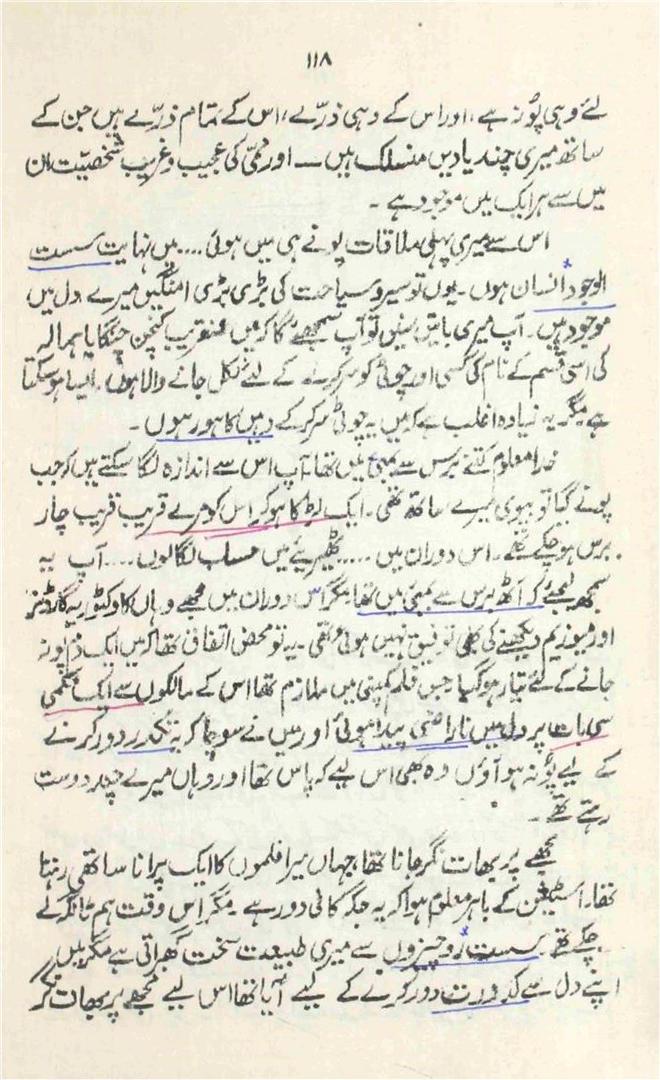 ۱۱۸
لئے وہی پُونہ ہے، اور اس کے وہی ذرّے، اس کے تمام ذرّے ہیں جن کے
ساتھ میری چند یادیں منسلک ہیں ۔۔ اور ممّی کی عجیب و غریب شخصیّت ان
میں سے ہر ایک میں موجود ہے ۔
اس سے میری پہلی ملاقات پونے ہی میں ہوئی .... میں نہایت سست
الوجود انسان ہوں ۔ یوں تو سیر و سیاحت کی بڑی بڑی امنگیں میرے دل میں
موجود ہیں ۔ آپ میری باتیں سنیں تو آپ سمجھئے گا کہ میں عنقریب کنچن چنگا یا ہمالہ
کی اسی قسم کے نام کی کسی اور چوٹی کو سر کرنے کے لئے نکل جانے والا ہوں ۔ ایسا ہو سکتا
ہے مگر یہ زیادہ اغلب ہے کہ میں یہ چوٹی سر کر کے وہیں کا ہو رہوں ۔
خدا معلوم کتنے برس سے بمبئی میں تھا ۔ آپ اس سے اندازہ لگا سکتے ہیں کہ جب
پونے گیا تو بیوی میرے ساتھ تھی ۔ ایک لڑکا ہو کر اس کو مرے قریب قریب چار
برس ہو چکے تھے ۔ اس دوران میں ..... ٹھیریئے میں حساب لگا لوں .... آپ یہ
سمجھ لیجئے کہ آٹھ برس سے بمبئی میں تھا مگر اس دوران میں مجھے وہاں کا وکٹوریہ گارڈنز
اور میوزیم دیکھنے کی بھی توفیق نہیں ہوئی تھی ۔ یہ تو محض اتفاق تھا کہ میں ایک دم پونہ
جانے کے لئے تیار ہو گیا ۔ جس فلم کمپنی میں ملازم تھا اس کے مالکوں سے ایک نکمی
سی بات پر دل میں ناراضی پیدا ہوئی اور میں نے سوچا کہ یہ تکدر دور کرنے
کے لیے پُونہ ہو آؤں وہ بھی اس لیے کہ پاس تھا اور وہاں میرے چند دوست
رہتے تھے ۔
مجھے پربھات نگر جانا تھا، جہاں میرا فلموں کا ایک پرانا ساتھی رہتا
تھا ۔ اسٹیشن کے باہر معلوم ہوا کہ یہ جگہ کافی دور ہے ۔ مگر اس وقت ہم تانگہ لے
چکے تھے ۔ سست رو چیزوں سے میری طبیعت سخت گھبراتی ہے مگر میں
اپنے دل سے کدورت دور کرنے کے لیے آیا تھا اس لیے مجھے پربھات نگر